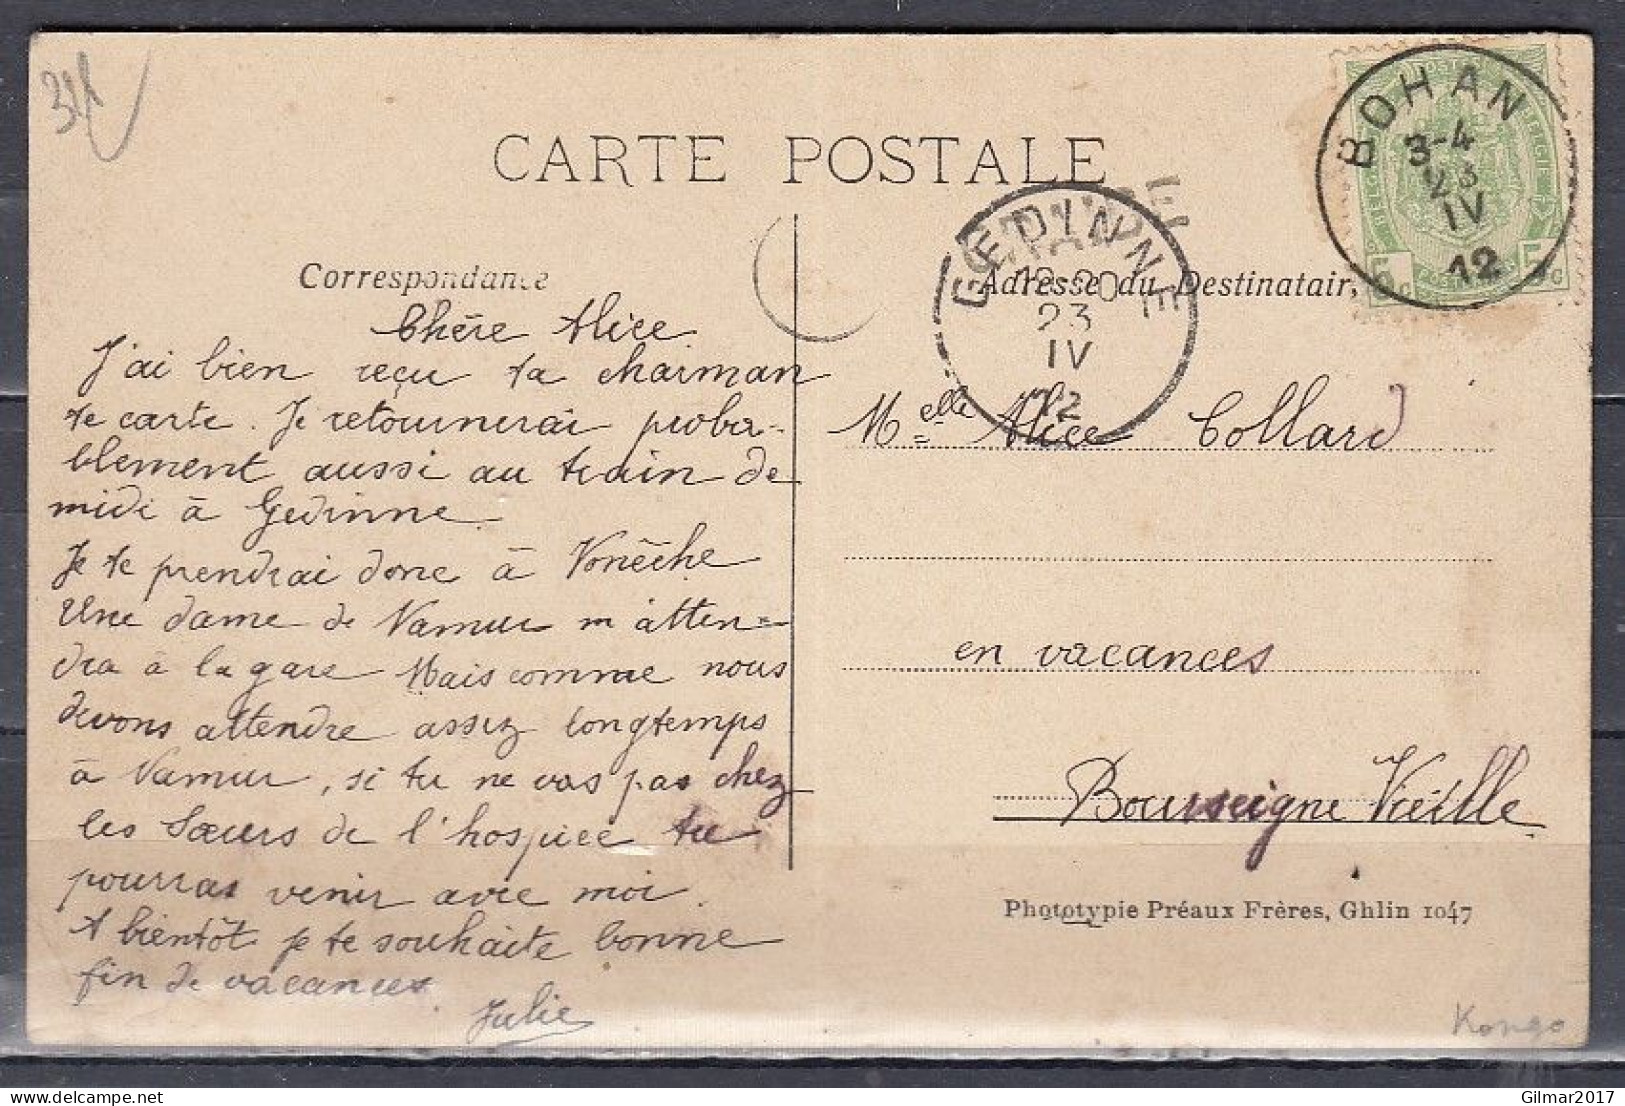 CARTE POSTALE
BOHAN
3-4
23
IV
12
GEDINNE
23
IV
12
Correspondance
Adresse du Destinatair
Chère Alice
J'ai bien reçu ta charman
te carte. Je retournerai proba-
blement aussi au train de
midi à Gedinne.
Je te prendrai donc à Vonêche
Une dame de Namur m'atten=
dra à la gare Mais comme nous
devons attendre assez longtemps
à Namur, si tu ne vas pas chez
les Sœurs de l'hospice tu
pourras venir avec moi.
A bientôt je te souhaite bonne
fin de vacances
Julie
Melle Alice Collard
en vacances
Bourseigne Vieille
Phototypie Préaux Frères, Ghlin 1047
Kongo
Gilmar2017